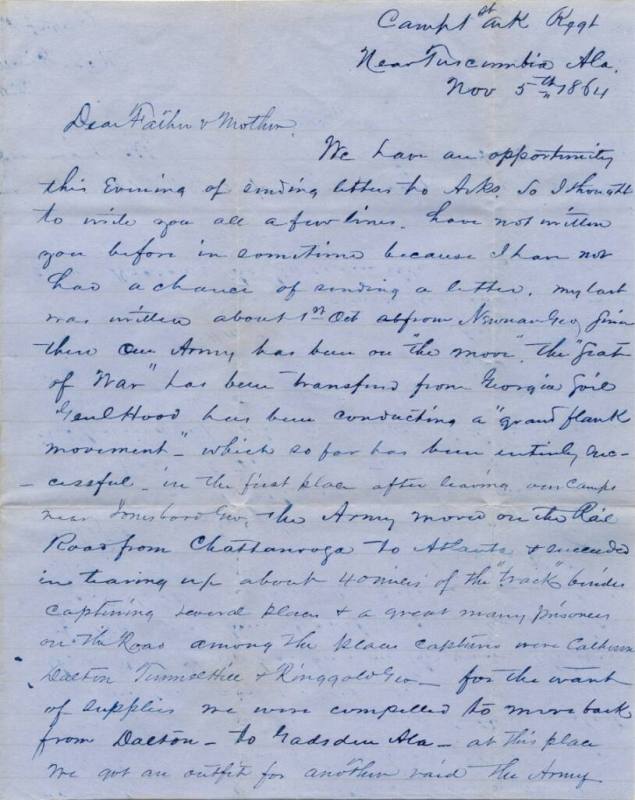 Camp 1st Ark Regt
Near Tuscumbia Ala.
Nov 5th 1864
Dear Father & Mother.
We have an opportunity
this Evening of sending letters to Arks. So I thought
to write you all a few lines. have not written
you before in sometime because I have not
had a chance of sending a letter. my last
was written about 1st Oct from Newnan Geo, Since
then our Army has been on "the move". the "Seat
of War" has been transferd from Georgia Soil
Genl Hood has been conducting a "grand flank
movement" which so far has been entirely suc-
-cessful - in the first place after leaving our Camps
near Jonesboro Geo, the Army moved on the Rail
Road from Chattanooga to Atlanta & succeeded
in tearing up about 40 miles of the "track" besides
capturing several places & a great many prisoners
on the Road among the places captured were Calhoun
Dalton Tunnel Hill & Ringgold Geo - for the want
of supplies we were compelled to move back
from Dalton - to Gadsden Ala - at this place
we got an outfit for another raid the Army